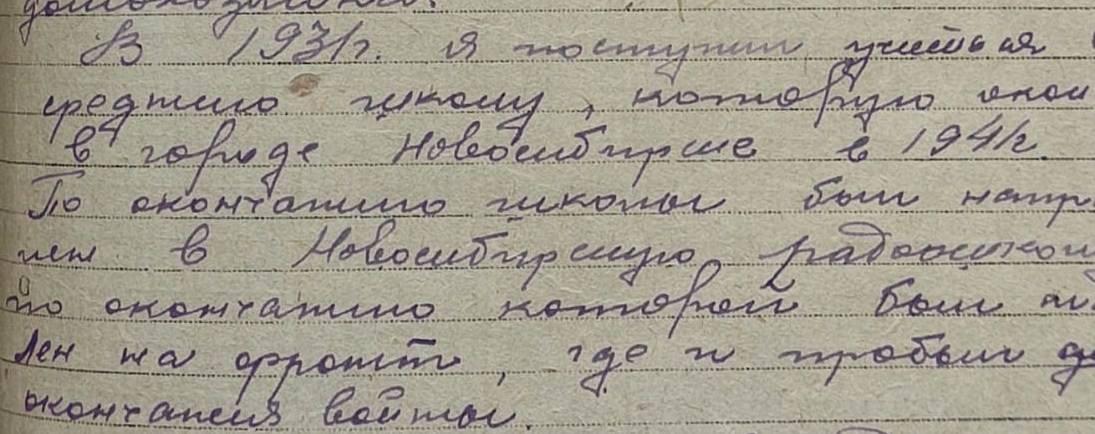 В 1931г. я поступил учиться в
среднюю школу, которую окон
в городе Новосибирске в 1941г.
По окончанию школы был напр
лен в Новосибирскую радиошколу
по окончанию которой был
лен на фронт, где и пробыл до
окончания войны.